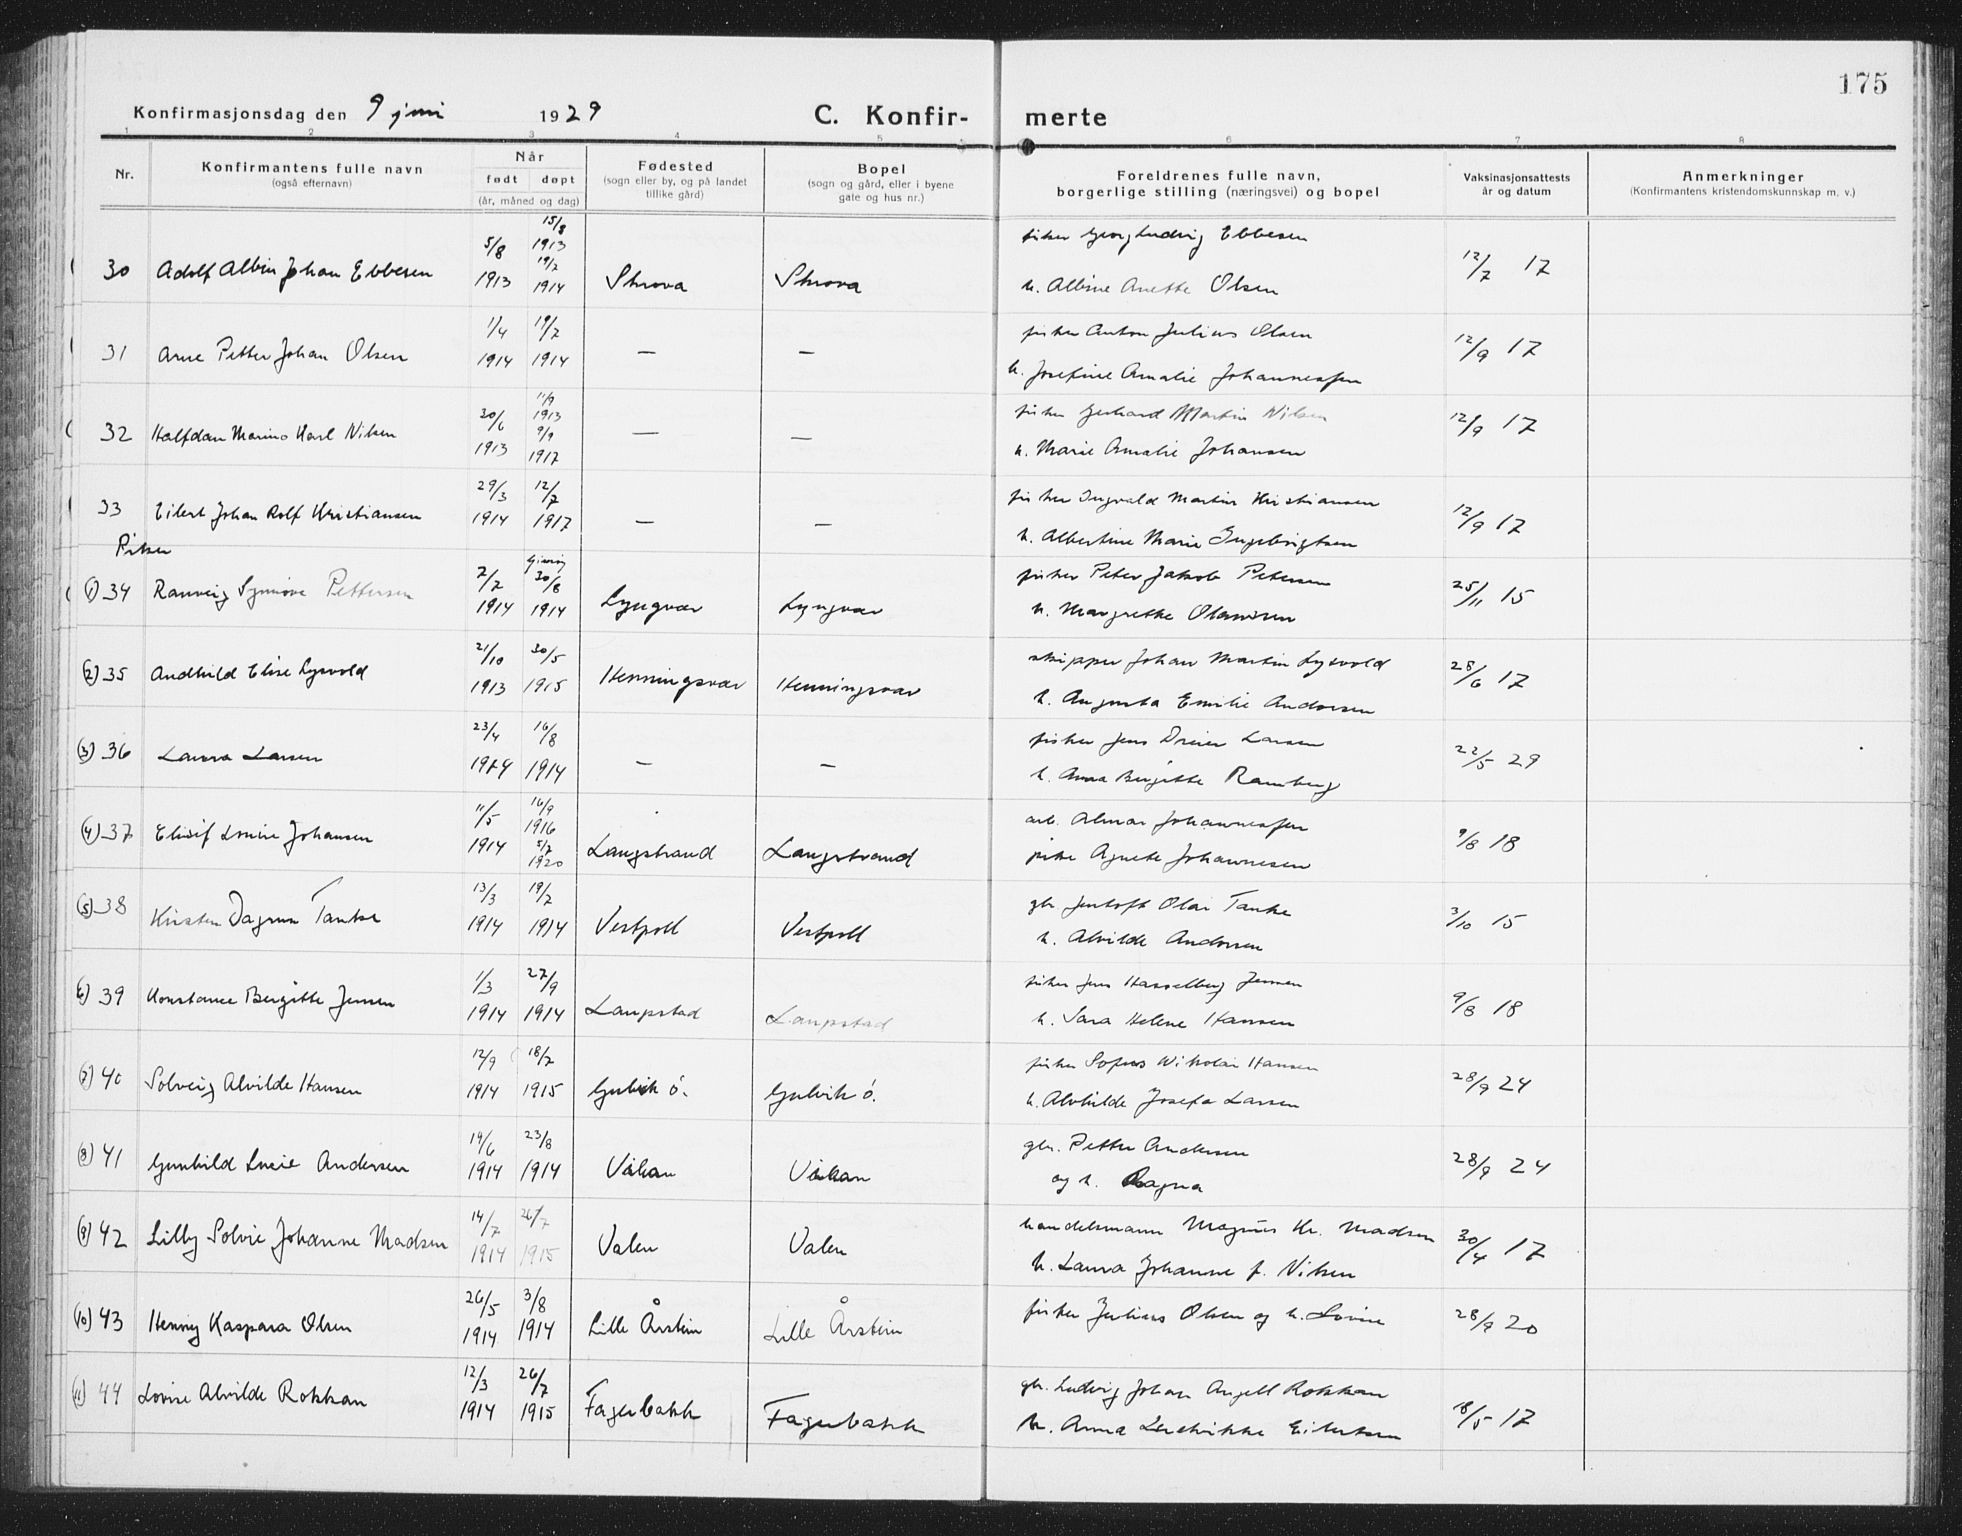 175
Konfirmasjonsdag den 9 juni 1929 C. Konfir- merte
1 2 3 4 5 6 7 8
Nr. Konfirmantens fulle navn (også efternavn) Når født døpt (år, måned og dag) Fødested (sogn eller by, og på landet tillike gård) Bopel (sogn og gård, eller i byene gate og hus nr.) Foreldrenes fulle navn, borgerlige stilling (næringsvei) og bopel Vaksinasjonsattests år og datum Anmerkninger (Konfirmantens kristendomskunnskap m. v.)
15/8
5/8 1913 fisker Georg Ludvig Ebbesen
30 Adolf Albin Johan Ebbesen 19/7 12/7 17
1913 1914 Skrova Skrova h. Albine Anette Olsen
1/4 19/7 fisker Anton Julius Olsen
31 Arne Petter Johan Olsen 1914 1914 — — 12/9 17
h. Josefine Amalie Johannessen
11/9
20/6 1913 fisker Gerhard Martin Nilsen
32 Halfdan Marino Karl Nilsen 9/9 — — 12/9 17
1913 1917 h. Marie Amalie Johansen
29/3 12/7 fisker Ingvald Martin Kristiansen
33 Eilert Johan Rolf Kristiansen 1914 1917 — — 12/9 17
h. Albertine Marie Ingebrigtsen
Piker
2/7 30/8 fisker Peter Jakob Petersen
(1) 34 Ranveig Synnøve Pettersen 1914 1914 Lyngvær Lyngvær 25/11 15
h. Margrethe
21/10 30/5 skipper Johan Martin Lysvold
(2) 35 Andhild Elise Lysvold 1913 1915 Henningsvær Henningsvær 28/6 17
h. Augusta Emilie Andersen
23/4 16/8 fisker Jens Dreier Larsen
(3) 36 Laura Larsen 1914 1914 — — 22/5 29
h. Anna Bergitte Ramberg
11/5 16/9 1916 arb. Almar Johannessen
(4) 37 Elisif Louise Johansen 1914 5/7 1920 Laugstrand Laugstrand 9/8 18
pike Agnete Johannesen
13/3 19/7 gbr. Jentoft Olai Tanke
(5) 38 Kristen Dagrun Tanke 1914 1914 Vestpoll Vestpoll 3/10 15
h. Alvilde Andersen
1/3 27/9 fisker Jens Hasselberg Jensen
(6) 39 Konstance Bergitte Jensen 1914 1914 Laupstad Laupstad 9/8 18
h. Sara Helene Hansen
12/9 18/7 fisker Sofus Nikolai Hansen
(7) 40 Solveig Alvilde Hansen 1914 1915 Gulvik ö. Gulvik ö. 28/9 24
h. Alvhilde Josefa Larsen
19/6 23/8 gbr. Petter Andersen
(8) 41 Gunhild Lucie Andersen 1914 1914 28/9 24
og h. Ragna
14/7 26/7 handelsmann Magnus Kr. Madsen
(9) 42 Lilly Solvie Johanne Madsen 1914 1915 Valen Valen 30/4 17
h. Laura Johanne f. Nilsen
26/5 3/8 fisker Julius Olsen og h. Lovise
(10) 43 Henny Kaspara Olsen 1914 1914 Lille Årstein Lille Årstein 28/9 20
12/3 26/7 gbr. Ludvig Johan Angell Rokkan
(11) 44 Lovise Alvilde Rokkan 1914 1915 Fagerbakk Fagerbakk 18/5 17
h. Anna Eilertsen